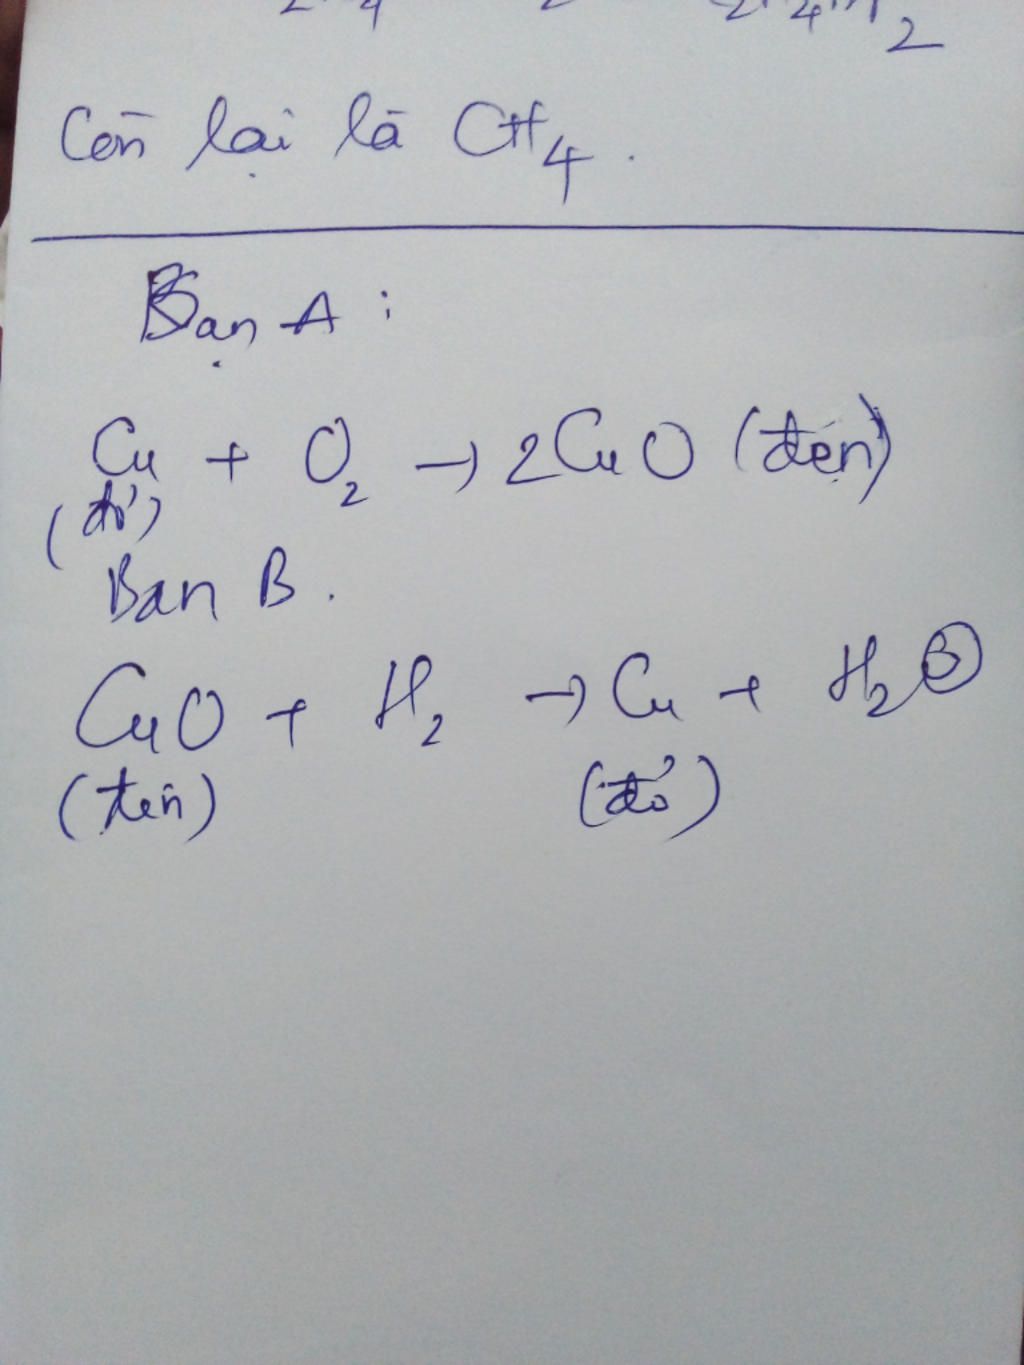 Còn lại là CH4.
Bạn A:
Cu + O2 → 2CuO (đen)
(đỏ)
Bạn B.
CuO + H2 → Cu + H2O
(đen) (đỏ)